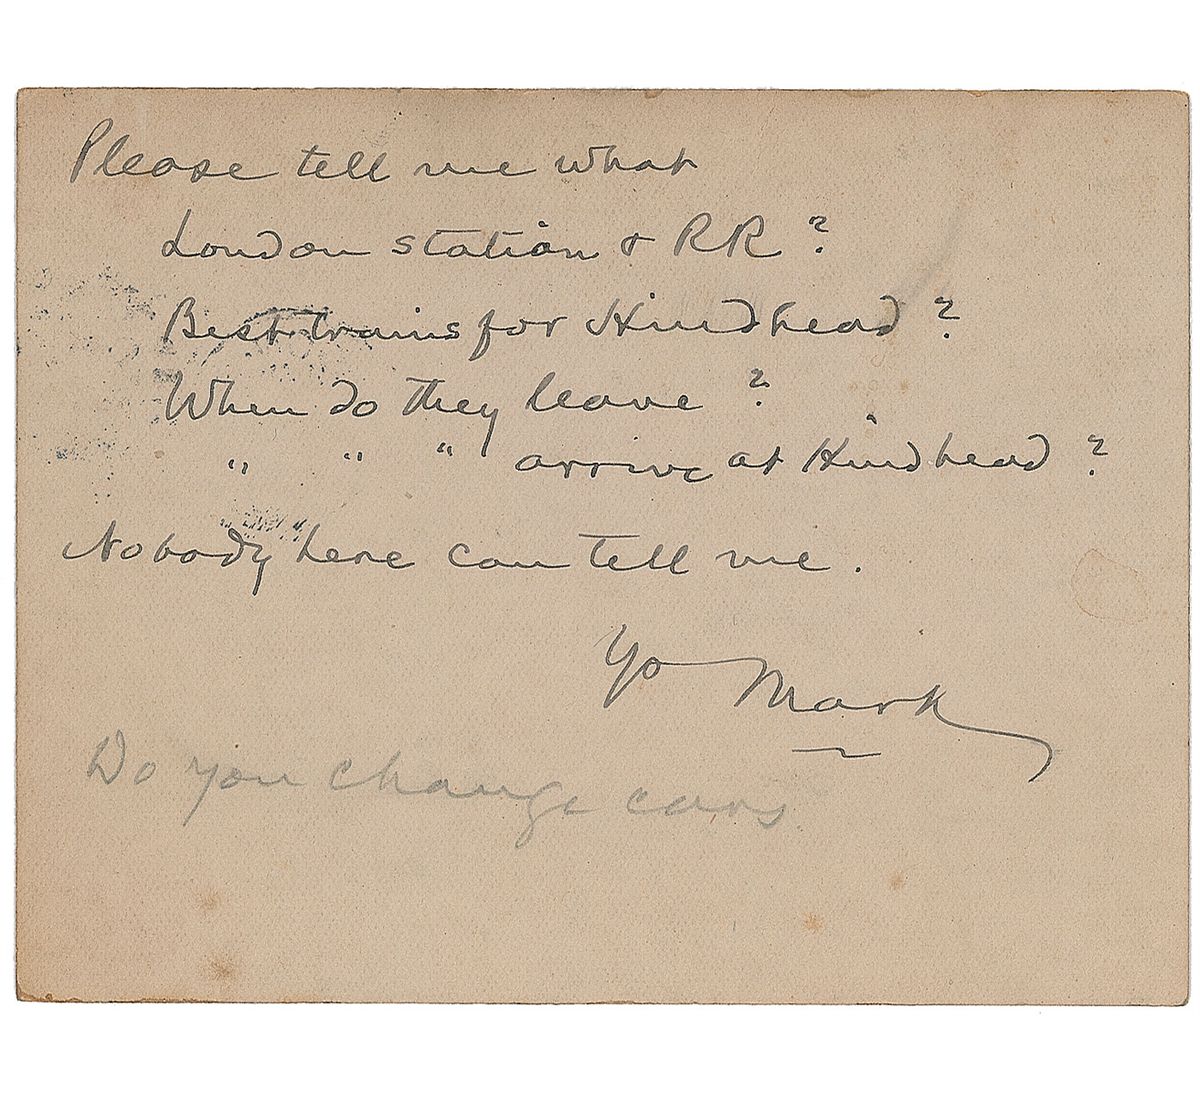 Please tell me what
London station & RR?
Best trains for Hindhead?
When do they leave?
" " " arrive at Hindhead?
Nobody here can tell me.
Ys Mark
Do you change cars